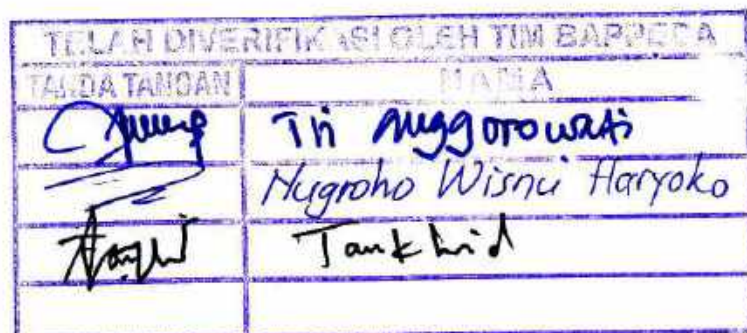 TELAH DIVERIFIKASI OLEH TIM BAPPEDA
TANDA TANGAN NAMA
Tri Anggorowati
Nugroho Wisnu Haryoko
Tankhid